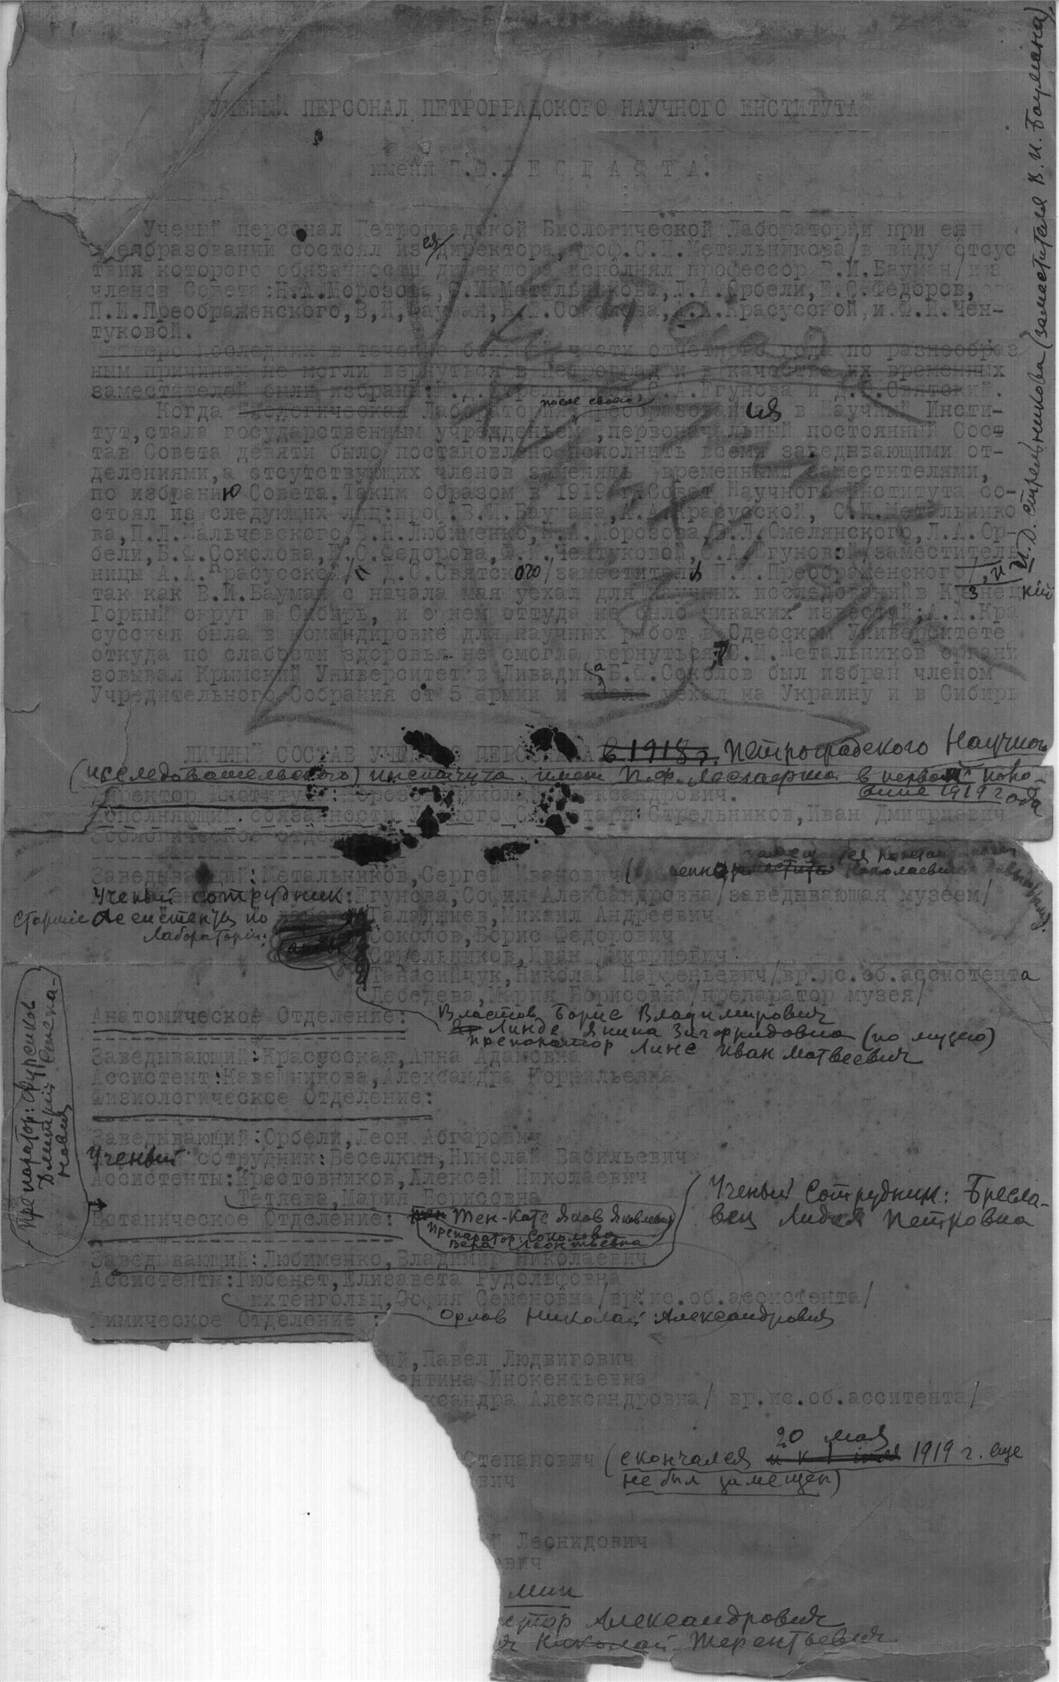 УЧЕНЫЙ ПЕРСОНАЛ ПЕТРОГРАДСКОГО НАУЧНОГО ИНСТИТУТА
имени П.Ф.ЛЕСГАФТА.
Ученый персонал Петроградской Биологической Лаборатории при ея
преобразовании состоял из директора, проф.С.И.Метальникова/в виду отсус
твия которого обязанности директора исполнял профессор В.И.Бауман/из
членов Совета:Н.А.Морозова,С.И.Метальникова,Л.А.Орбели,Е.С.Федоров,
П.И.Преображенского,В.И.Бауман,Б.Ф.Соколова,А.А.Красусской,и.Ф.И.Чен-
туковой.
Четверо последних в течение большей части отчетного года по разнообраз
ным причинам не могли вернуться в Петроград и в качестве их временных
заместителей были избраны: С.А.Егунова и Д.О.Святский.
после своего
Когда Биологическая Лаборатория преобразования в Научный Инсти-
тут,стала государственным учреждением ,первоначальный постоянный Сос-
тав Совета девяти было постановлено пополнить всеми заведывающими от-
делениями,а отсутствующих членов заменять временными заместителями,
по избранию Совета.Таким образом в 1919 г.Совет Научного Института со-
стоял из следующих лиц:проф.В.И.Баумана,А.А.Красусской, С.И.Метальнико
ва,П.Л.Мальчевского,В.Н.Любименко,Н.А.Морозова,В.Л.Омелянского,Л.А.Ор-
бели,Б.Ф.Соколова,Е.С.Федорова,Ф.И.Чентуковой,С.А.Егуновой/заместитель
ницы А.А.Красусской/и Д.О.Святского/заместителя П.И.Преображенского/,
так как В.И.Бауман с начала мая уехал для научных исследований в Кузнецкий
Горный округ в Сибирь, и о нем оттуда не было никаких известий;А.А.Кра
сусская была в командировке для научных работ в Одесском Университете
откуда по слабости здоровья не смогла вернуться,С.И.Метальников органи
зовывал Крымский Университет в Ливадии,а Б.Ф.Соколов был избран членом
Учредительного Собрания от 5 армии и уехал на Украину и в Сибирь
и И.Д. Стрельникова (заместителя В.И. Баумана)
ЛИЧНЫЙ СОСТАВ УЧЕНОГО ПЕРСОНАЛА в 1918 г. Петроградского Научного
(исследовательского) института имени П.Ф. Лесгафта в первой поло-
вине 1919 года
Директор Института:Морозов,Николай Александрович.
Исполняющий обязанности ученого секретаря:Стрельников,Иван Дмитриевич
Зоологическое отделение
Заведывающий:Метальников,Сергей Иванович
Ученый сотрудник:Егунова,София Александровна/заведывающая музеем/
Старшие Ассистенты по Галаджиев,Михаил Андреевич
Лаборатории:
Соколов,Борис Федорович
Стрельников,Иван Дмитриевич
Гапасийчук,Николай Парфеньевич/вр.ис.об.ассистента
Лебедева,Мария Борисовна/препаратор музея/
Анатомическое Отделение:
Властов Борис Владимирович
Линде Янина Зигфридовна (по музею)
препаратор Линс Иван Матвеевич
Заведывающий:Красусская,Анна Адамовна
Ассистент:Кавешникова,Александра Корнильевна
Физиологическое Отделение:
Препаратор: Фурсиков
Дмитрий Степа-
нович
Заведывающий:Орбели,Леон Абгарович
Ученый сотрудник:Веселкин,Николай Васильевич
Ассистенты:Крестовников,Алексей Николаевич
Тетяева,Мария Борисовна
Ботаническое Отделение:
Тен-Кате Яков Яковлевич
Препаратор: Соколова
Вера Леонтьевна
Ученый Сотрудник: Бресла-
вец Лидия Петровна
Заведывающий:Любименко,Владимир Николаевич
Ассистенты:Гюбенет,Елизавета Рудольфовна
ихтенгольц,София Семеновна/вр.ис.об.ассистента/
Химическое Отделение :
Орлов Николай Александрович
ий,Павел Людвигович
ентина Инокентьевна
ександра Александровна/ вр.ис.об.асситента/
Степанович (скончался 20 мая и к 1 июля 1919 г. еще
не был замещен)
ович
Леонидович
евич
мин
ктор Александрович
Николай Терентьевич